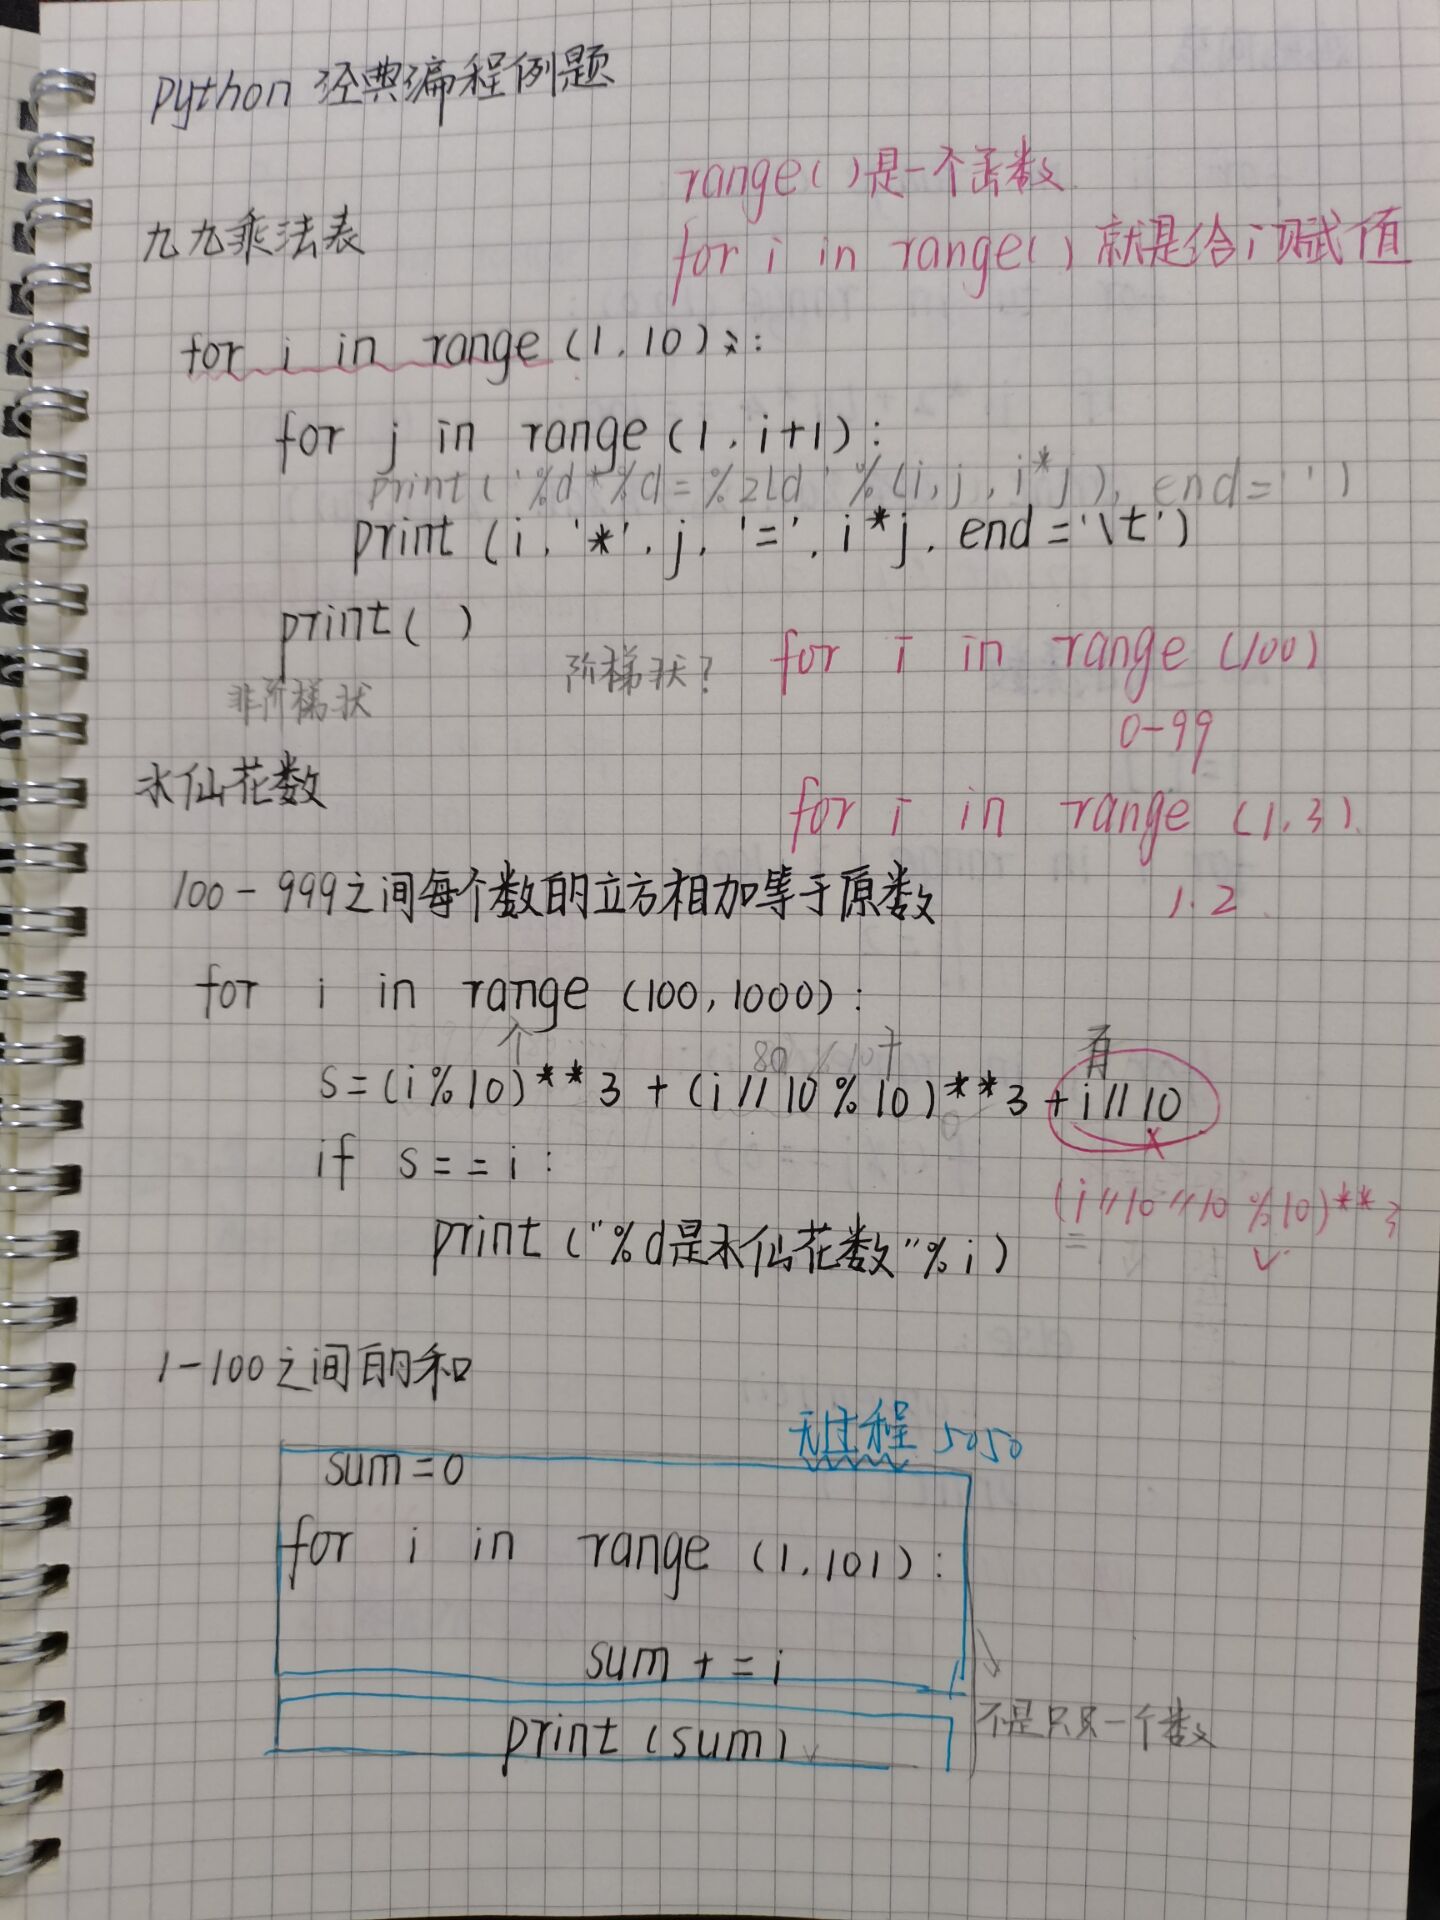 python 经典编程例题
range()是一个函数
九九乘法表
for i in range()就是给i赋值
for i in range(1,10):
for j in range(1,i+1):
print('%d*%d=%2ld'%(i,j,i*j),end=' ')
print(i,'*',j,'=',i*j,end='\t')
print( )
阶梯状?
for i in range (100)
非阶梯状
0-99
水仙花数
for i in range (1,3)
100-999之间每个数的立方相加等于原数
1.2
for i in range (100,1000):
个
十
百
s=(i%10)**3+(i//10%10)**3+i//10
if s==i:
(i//10//10%10)**3
print("%d是水仙花数"%i)
1-100之间的和
无过程 5050
sum=0
for i in range (1,101):
sum+=i
print(sum)
不是只是一个数